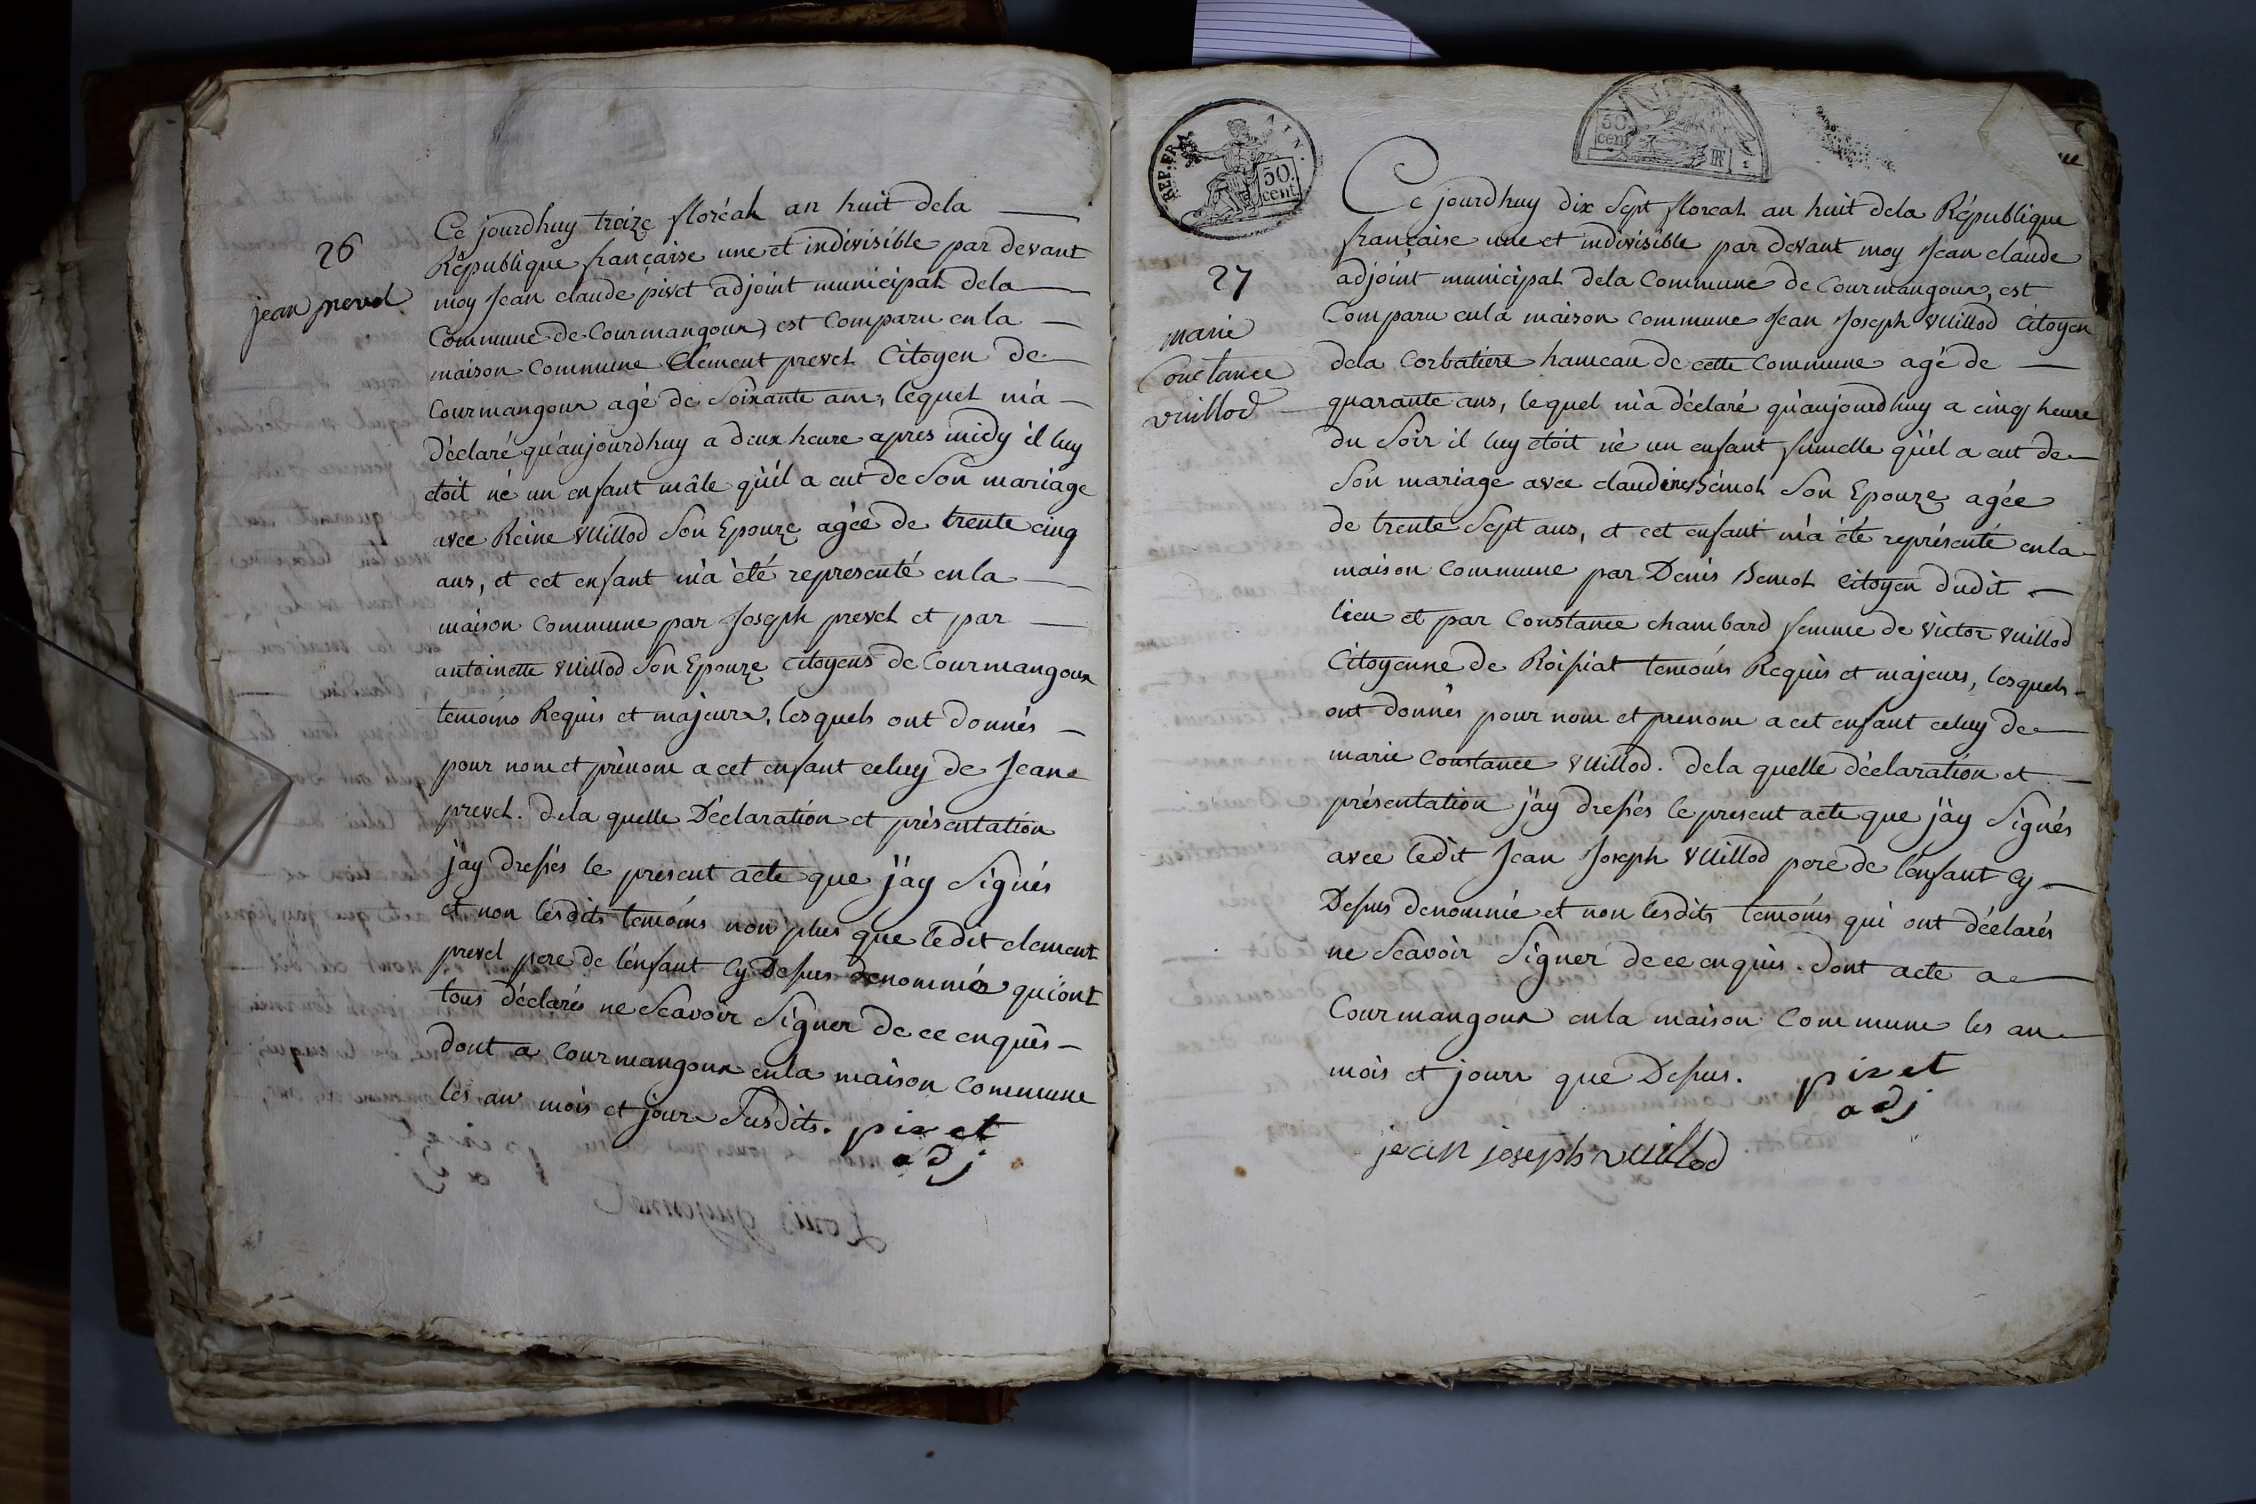 26
jean prevel
Ce jourdhuy treize floréal an huit dela
République française une et indivisible par devant
moy Jean claude pivet adjoint municipal dela
Commune de Courmangoux, est Comparu enla
maison Commune Clement prevel Citoyen de
Courmangoux agé de Soixante ans, lequel m'a
déclaré qu'aujourdhuy a deux heure apres midy il luy
etoit né un enfant mâle qu'il a eut de Son mariage
avec Reine vuillod Son Epouze agée de trente cinq
ans, et cet enfant m'a été representé enla
maison Commune par Joseph prevel et par
antoinette vuillod Son Epouze Citoyens de Courmangoux
temoins Requis et majeurs, lesquels ont donnés
pour nom et prénom a cet enfant celuy de Jean
prevel. dela quelle Déclaration et présentation
j'ay dressés le present acte que j'ay Signés
et non lesdits temoins non plus que ledit clement
prevel pere de l'enfant Cy Dessus denommés qui ont
tous déclarés ne Scavoir Signer de ce enquis
dont a Courmangoux enla maison Commune
les an mois et jour Susdits. pivet
adj
REP. FRA.
50.
cent.
50
cent
27
marie
Constance
vuillod
Ce jourdhuy dix Sept floreal an huit dela République
française une et indivisible par devant moy Jean claude
adjoint municipal dela Commune de Courmangoux, est
Comparu enla maison Commune Jean Joseph vuillod Citoyen
dela Corbatiere hameau de cette Commune agé de
quarante ans, lequel m'a déclaré qu'aujourdhuy a cinq heure
du Soir il luy etoit né un enfant fumelle qu'il a eut de
Son mariage avec claudine Bémol Son Epouze agée
de trente Sept ans, et cet enfant m'a été représenté enla
maison Commune par Denis Bemol Citoyen dudit
lieu et par Constance chambard femme de victor vuillod
Citoyenne de Roissiat temoins Requis et majeurs, lesquels
ont donnés pour nom et prenom a cet enfant celuy de
marie Constance vuillod. dela quelle déclaration et
présentation j'ay dressés le present acte que j'ay Signés
avec ledit Jean Joseph vuillod pere de l'enfant Cy
Dessus denommé et non lesdits temoins qui ont déclarés
ne Scavoir Signer de ce enquis. dont acte a
Courmangoux enla maison Commune les an
mois et jour que Dessus. pivet
adj
jean joseph vuillod